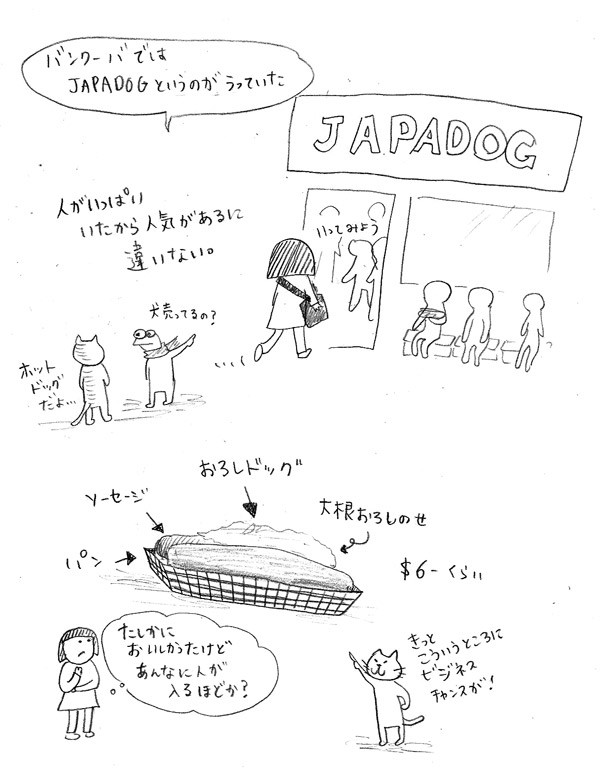 バンクーバでは
JAPADOGというのがうっていた
JAPADOG
人がいっぱい
いたから人気があるに
違いない。
いってみよう
犬売ってるの?
ホット
ドッグ
だよ…
おろしドッグ
ソーセージ
大根おろしのせ
パン
$6-くらい
たしかに
おいしかったけど
あんなに人が
入るほどか?
きっと
こういうところに
ビジネス
チャンスが!